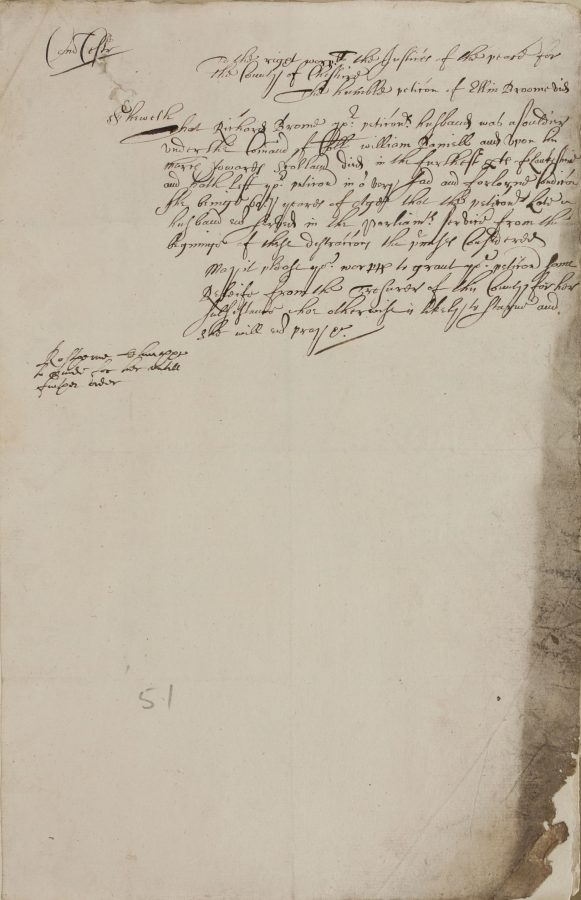 Com Cestr
To the right worpll the Justices of the peace for
the County of Chester
The humble peticon of Ellin Broome wid
Sheweth
That Richard Brome yor peticonrs husband was a souldier
under the Comand of william Daniell and upon his
march towards Scotland died in the furthest pte of
and hath left yor peticonr in a very sad and forlorne condicon
she beinge yeares of Age that the peticonrs late
husband served in the Parliamts service from the
beginninge of these distractions the p'misses Considered
May it please yor worpps to grant yor peticonr some
Releife from the Treasurer of this County for her
subsistance whoe otherwise is likely to starve and
she will ever pray &c
Rostorne
to provide for her untill
further order
51